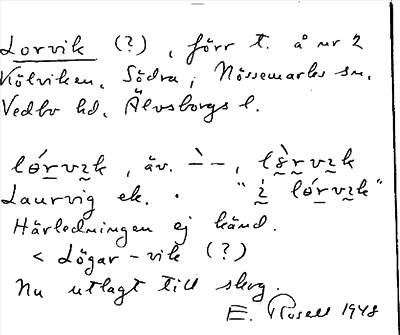 Lorvik (?), förr t. å nr 2
Kölviken, Södra, Nössemarks sn.
Vedbo hd. Älvsborgs l.
Laurvig ek.
Härledningen ej känd.
< Lögar-vik (?)
Nu utlagt till skog.
E. Rosell 1948